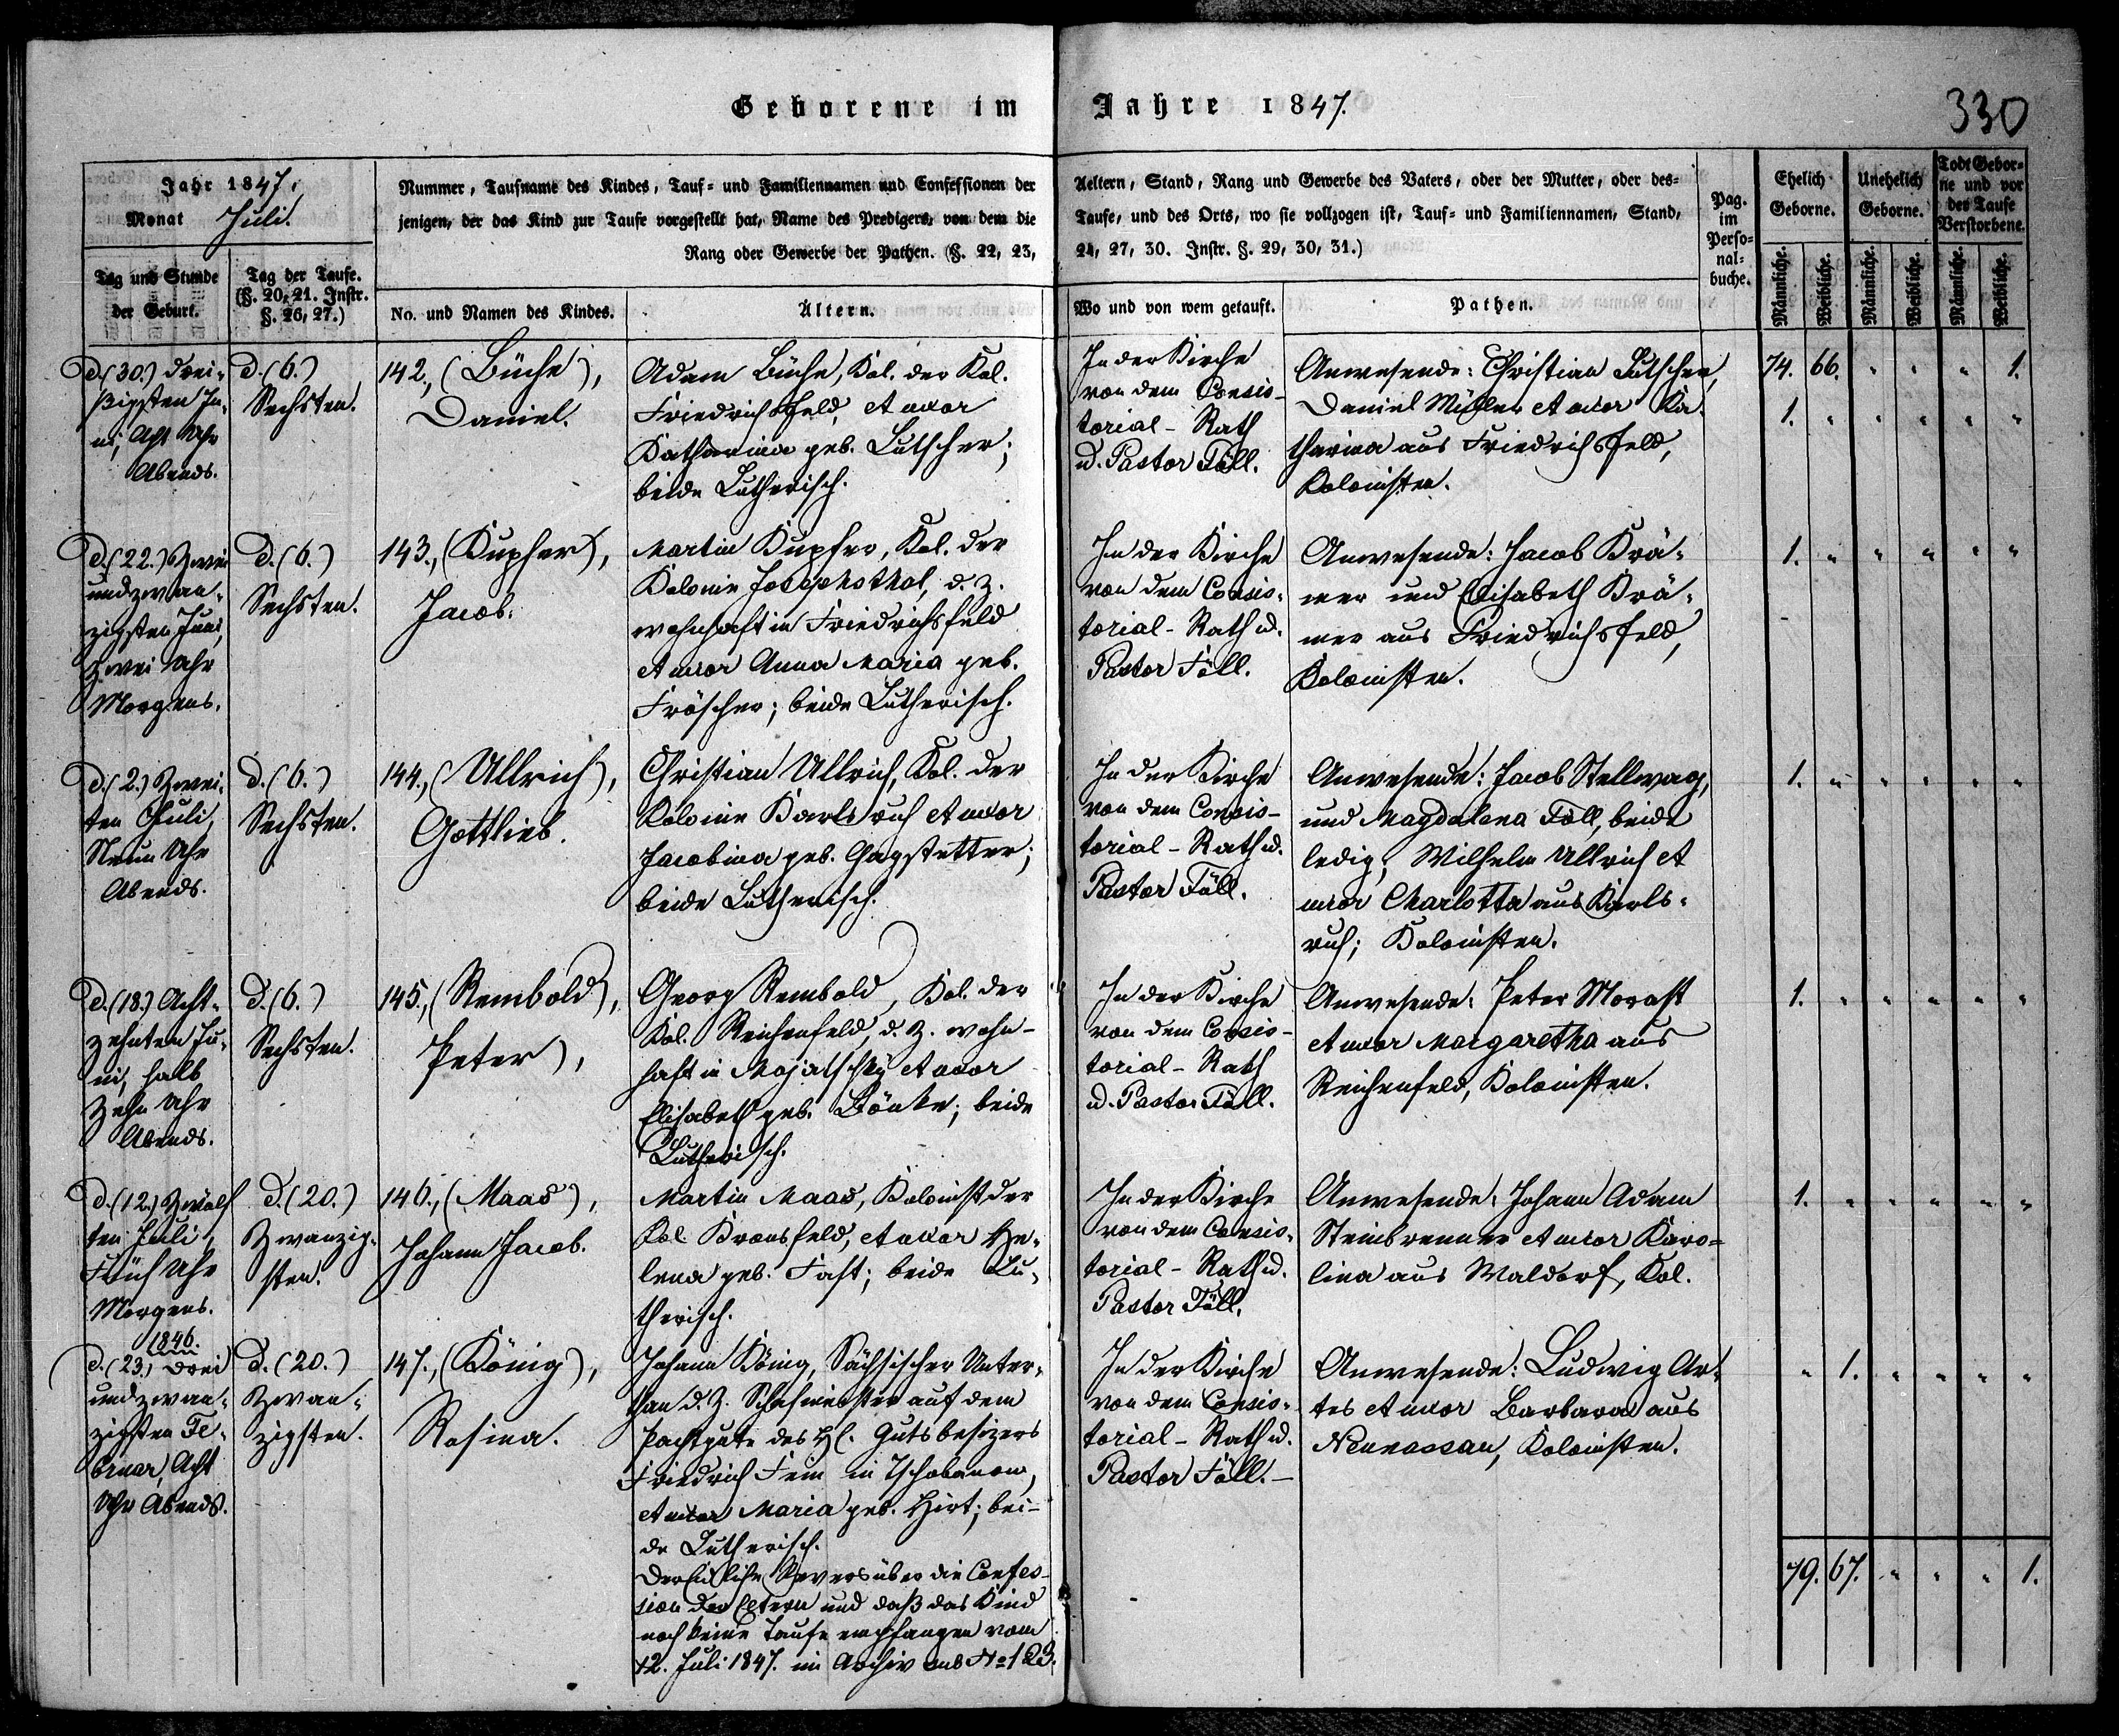 Geborene im Jahre 1847.
330
Jahr 1847.
Monat Juli.
Tag und Stunde
der Geburt.
Tag der Taufe.
(§. 20, 21. Instr.
§. 26, 27.)
Nummer, Taufname des Kindes, Tauf- und Familiennamen und Confessionen der
jenigen, der das Kind zur Taufe vorgestellt hat, Name des Predigers, von dem die
Rang oder Gewerbe der Pathen. (§. 22, 23,
No. und Namen des Kindes.
Ältern.
Aeltern, Stand, Rang und Gewerbe des Vaters, oder der Mutter, oder des-
Taufe, und des Orts, wo sie vollzogen ist, Tauf- und Familiennamen, Stand,
24, 27, 30. Instr. §. 29, 30, 31.)
Wo und von wem getauft.
Pathen.
Pag.
im
Perso-
nal-
buche.
Ehelich
Geborne.
Unehelich
Geborne.
Todt Gebor-
ne und vor
der Taufe
Verstorbene.
Männliche.
Weibliche.
Männliche.
Weibliche.
Männliche.
Weibliche.
d. (30.) drei-
ßigsten Ju-
ni, Acht Uhr
Abends.
d. (6.)
Sechsten.
142., (Büche),
Daniel.
Adam Büche, Kol. der Kol.
Friedrichsfeld, et uxor
Katharina geb. Lutscher;
beide Lutherisch.
In der Kirche
von dem Consis-
torial-Rath
u. Pastor Föll.
Anwesende: Christian Lutscher,
Daniel Müller et uxor Ka-
tharina aus Friedrichsfeld,
Kolonisten.
74. 66. " " " 1.
1. " " " " "
d. (22.) Zwei
und zwan-
zigsten Juni,
Zwei Uhr
Morgens.
d. (6.)
Sechsten.
143., (Kupfer),
Jacob.
Martin Kupfer, Kol. der
Kolonie Josephsthal, d. Z.
wohnhaft in Friedrichsfeld
et uxor Anna Maria geb.
Fröscher; beide Lutherisch.
In der Kirche
von dem Consis-
torial-Rath u.
Pastor Föll.
Anwesende: Jacob Krä-
mer und Elisabeth Krä-
mer aus Friedrichsfeld,
Kolonisten.
1. " " " " "
d. (2.) Zwei-
ten Juli,
Neun Uhr
Abends.
d. (6.)
Sechsten.
144., (Ullrich),
Gottlieb.
Christian Ullrich, Kol. der
Kolonie Karlsruh et uxor
Jacobina geb. Gagstetter;
beide Lutherisch.
In der Kirche
von dem Consis-
torial-Rath u.
Pastor Föll.
Anwesende: Jacob Stellwag,
und Magdalena Föll, beide
ledig; Wilhelm Ullrich et
uxor Charlotta aus Karls-
ruh; Kolonisten.
1. " " " " "
d. (18.) Acht-
zehnten Ju-
ni, halb
Zehn Uhr
Abends.
d. (6.)
Sechsten.
145., (Rembold),
Peter),
Georg Rembold, Kol. der
Kol. Reichenfeld, d. Z. wohn-
haft in Majatschky et uxor
Elisabeth geb. Bönke; beide
Lutherisch.
In der Kirche
von dem Consis-
torial-Rath
u. Pastor Föll.
Anwesende: Peter Morast
et uxor Margaretha aus
Reichenfeld, Kolonisten.
1. " " " " "
d. (12.) Zwölf
ten Juli,
Früh Uhr
Morgens.
d. (20.)
Zwanzig-
sten.
146., (Maas),
Johann Jacob.
Martin Maas, Kolonist der
Kol. Kronsfeld, et uxor He-
lena geb. Fast; beide Lu-
therisch.
In der Kirche
von dem Consis-
torial-Rath u.
Pastor Föll.
Anwesende: Johann Adam
Steinbrenner et uxor Karo-
lina aus Waldorf, Kol.
1. " " " " "
1846.
d. (23.) Drei
und zwan-
zigsten Fe-
bruar, Acht
Uhr Abends.
d. (20.)
Zwan-
zigsten.
147., (König),
Rosina.
Johann König, Sächsischer Unter-
than d. Z. Schafmeister auf dem
Pachtgute des H. Gutsbesizers
Friedrich Fein in Tschobanow,
et uxor Maria geb. Hirt; bei-
de Lutherisch.
Der eidliche Revers über die Confes-
sion der Eltern und daß das Kind
noch keine Taufe empfangen vom
12. Juli 1847. im Archiv sub No 123.
In der Kirche
von dem Consis-
torial-Rath u.
Pastor Föll.-
Anwesende: Ludwig Ar-
tes et uxor Barbara aus
Neunassau, Kolonisten.
" 1. " " " "
79. 67. " " " 1.